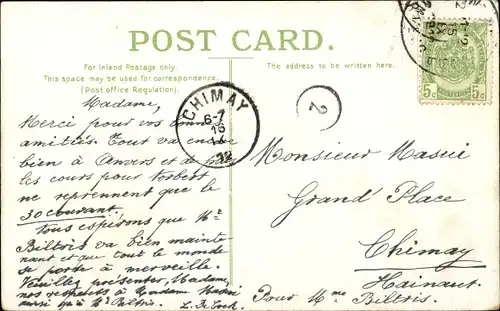 POST CARD.
For Inland Postage only.
This space may be used for correspondence.
(Post office Regulation).
The address to be written here.
Madame,
Merci pour vos
amitiés. Tout va
bien à Anvers et de
les cours pour Norbert
ne reprennent que le
30 courant
Nous espérons que Mr
Biltris va bien mainte
nant et que tout le monde
se porte à merveille.
Veuillez présenter, Madame,
nos respects à Madame
ainsi qu'à Mr Biltris.
CHIMAY
6-7
16
2
5c 5c
Monsieur Masui
Grand' Place
Chimay
Hainaut.
Pour Mme Biltris.